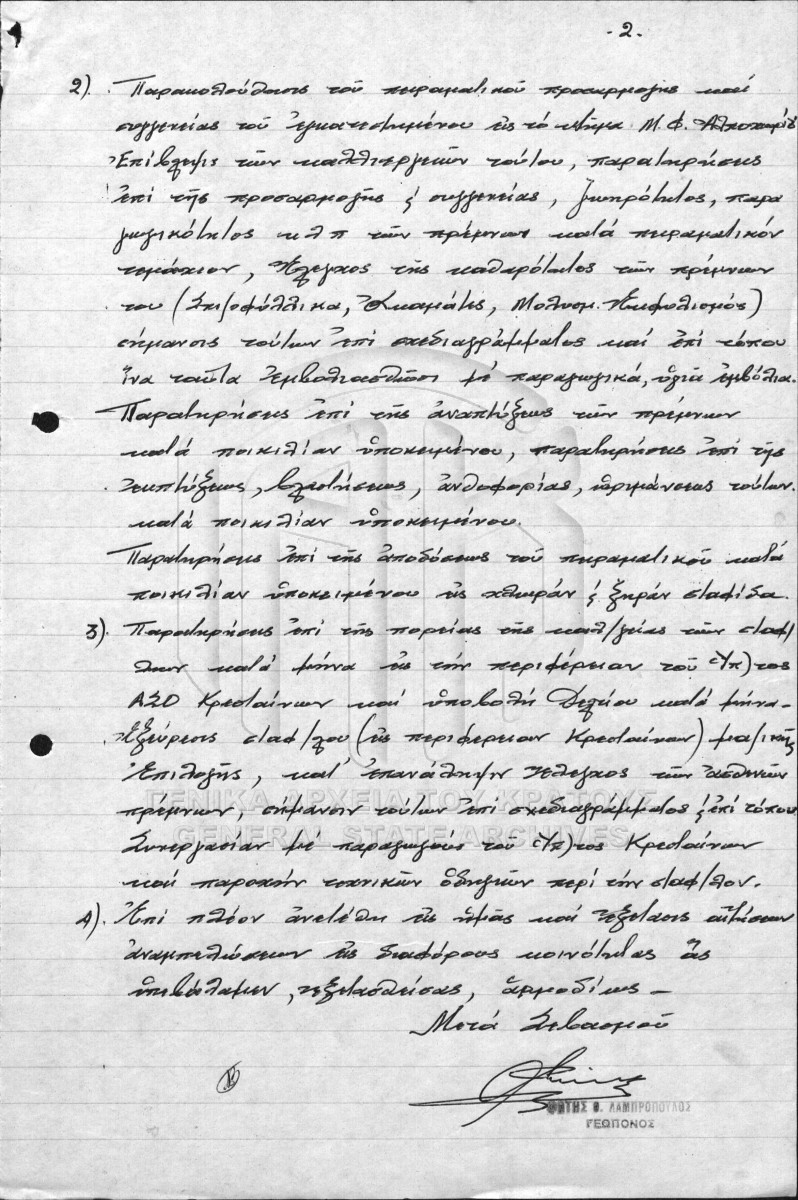 - 2 -
2) Παρακολούθησις τοῦ πειραματικοῦ προσαρμογῆς καί
συγγενείας τοῦ ἐγκατεστημένου εἰς τό κτῆμα Μ.Φ.
Ἐπίβλεψις τῶν καλλιεργειῶν τούτου, παρατηρήσεις
ἐπί τῆς προσαρμογῆς & συγγενείας, ζωηρότητος, παρα
γωγικότητος κλπ τῶν πρέμνων κατά πειραματικόν
τεμάχιον, Ἔλεγχος τῆς καθαρότητος τῶν πρέμνων
του (Σπιζοφύλλικα, Μολυσμ. Ἐκφυλισμός)
σήμανσις τούτων ἐπί σχεδιαγράμματος καί ἐπί τόπου
ἵνα ταῦτα ἐμβολιασθῶσι μέ παραγωγικά, ὑγιᾶ ἐμβόλια.
Παρατηρήσεις ἐπί τῆς ἀναπτύξεως τῶν πρέμνων
κατά ποικιλίαν ὑποκειμένου, παρατηρήσεις ἐπί τῆς
ἐκπτύξεως, βλαστήσεως, ἀνθοφορίας, ὡριμάνσεως τούτων
κατά ποικιλίαν ὑποκειμένου.
Παρατηρήσεις ἐπί τῆς ἀποδόσεως τοῦ πειραματικοῦ κατά
ποικιλίαν ὑποκειμένου εἰς χλωράν & ξηράν σταφίδα.
3) Παρατηρήσεις ἐπί τῆς πορείας τῆς καλ/γείας τῶν σταφ/
λων κατά μῆνα εἰς τήν περιφέρειαν τοῦ Ὑπ/τος
ΑΣΟ Κρεσταίνων καί ὑποβολή Δελτίου κατά μῆνα-
Ἐξεύρεσις σταφ/λου (εἰς περιφέρειαν Κρεσταίνων) μαζικῆς
Ἐπιλογῆς, κατ' ἐπανάληψιν ἔλεγχος τῶν ἀσθενῶν
πρέμνων, σήμανσιν τούτων ἐπί σχεδιαγράμματος & ἐπί τόπου
Συνεργασίαν μέ παραγωγούς τοῦ Ὑπ/τος Κρεσταίνων
καί παροχήν τεχνικῶν ὁδηγιῶν περί τήν σταφ/λον.
4) Ἐπί πλέον ἀνετέθη εἰς ἡμᾶς καί ἐξέτασις αἰτήσεων
ἀναμπελώσεων εἰς διαφόρους κοινότητας ἅς
ὑπεβάλαμεν, ἐξετασθείσας, ἁρμοδίως -
Μετά Σεβασμοῦ
ΦΩΤΗΣ Θ. ΛΑΜΠΡΟΠΟΥΛΟΣ
ΓΕΩΠΟΝΟΣ
ΓΕΝΙΚΑ ΑΡΧΕΙΑ ΤΟΥ ΚΡΑΤΟΥΣ
GENERAL STATE ARCHIVES